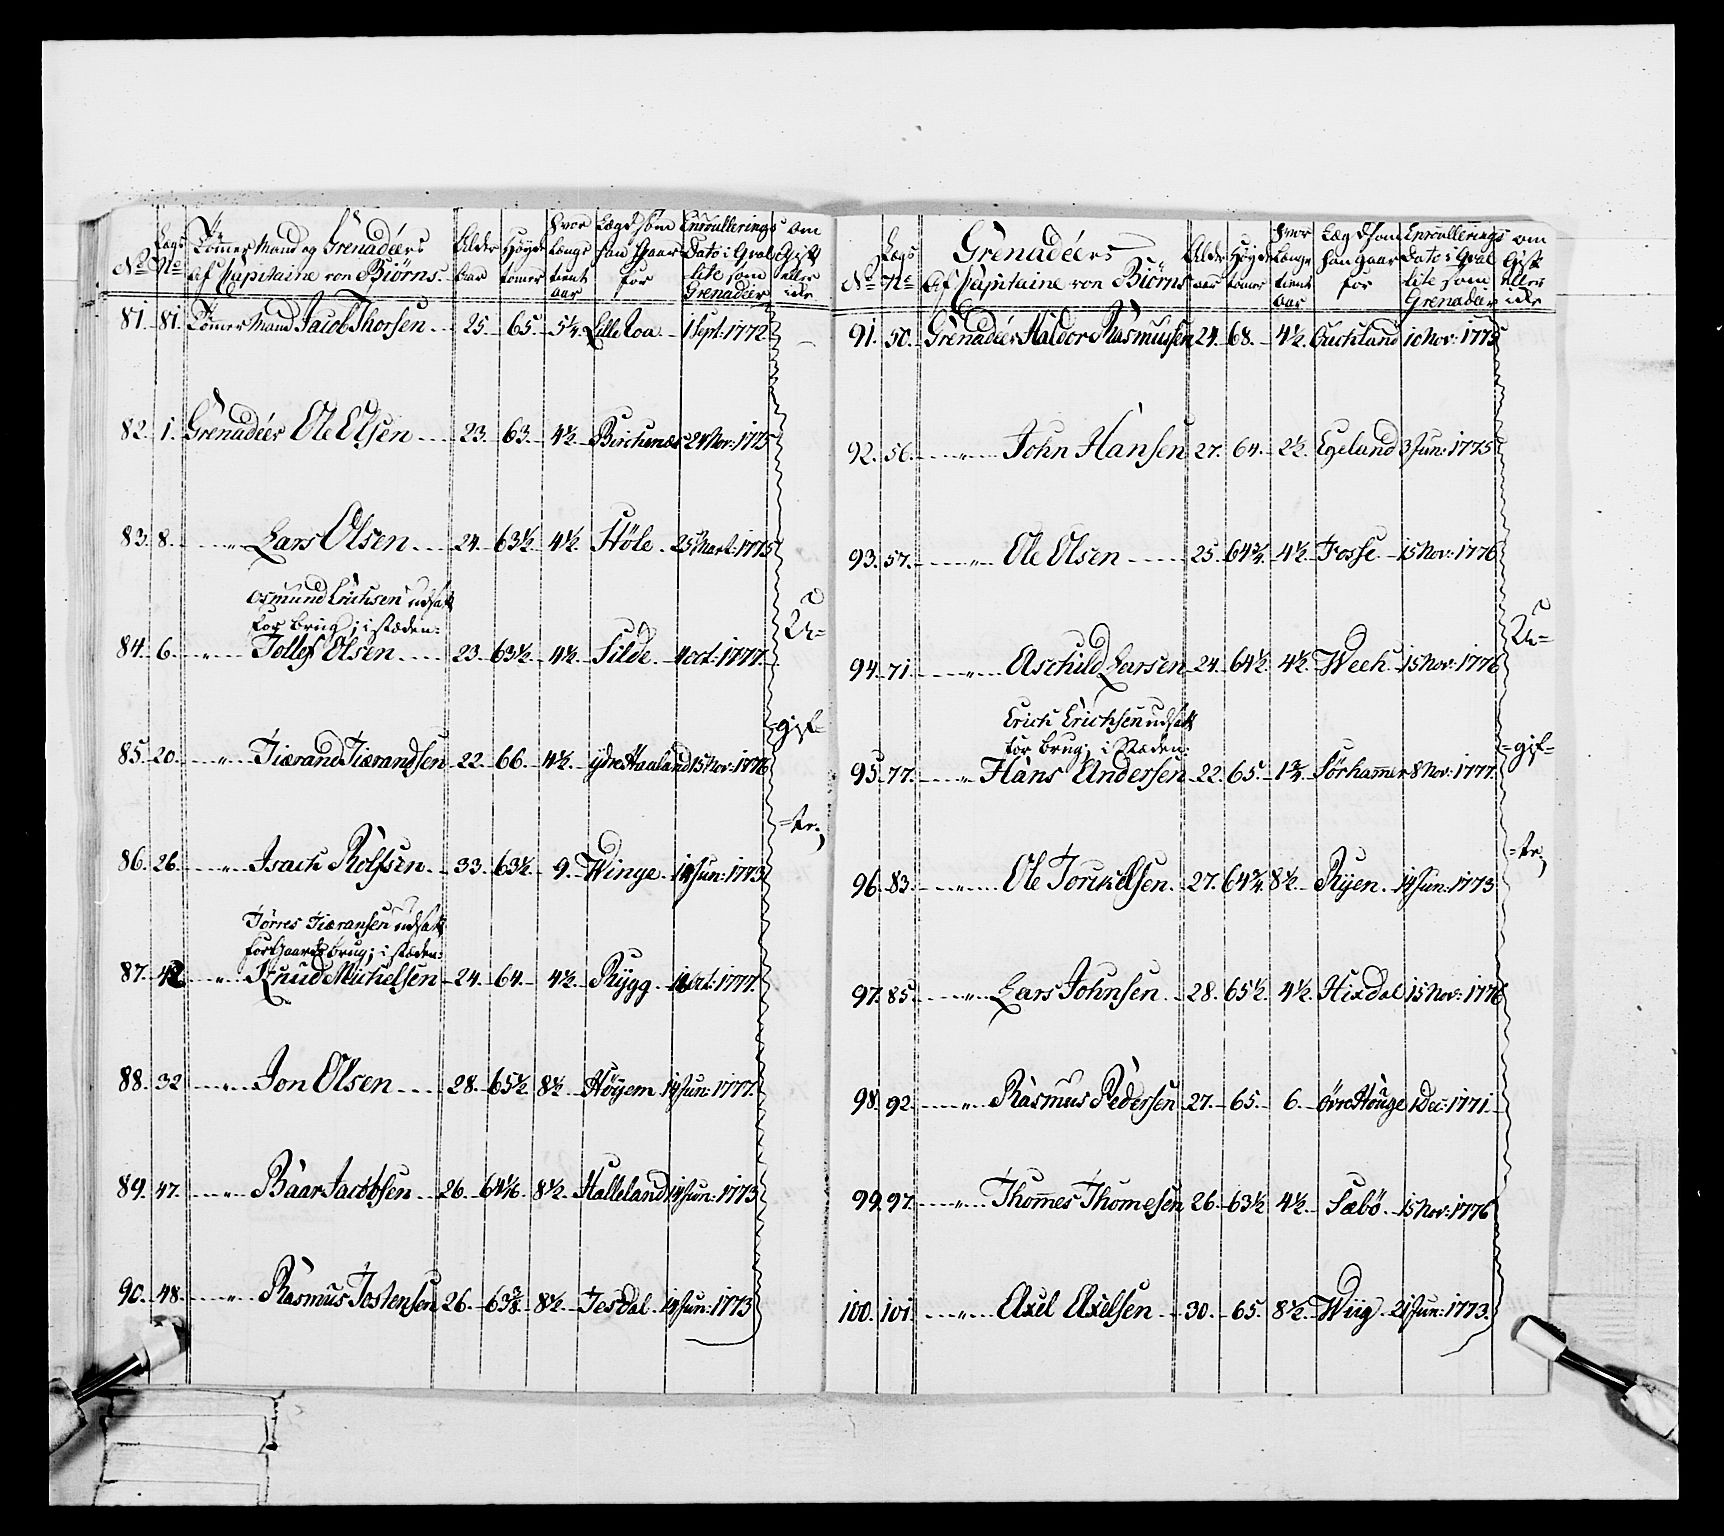 No Lægs No Tömer Mand og Grenadéers af Capitaine von Biörns. Alder aar Höyde tomer Hvor længe tient aar Lægd som han Gaar for Enroullerings Dato i Qvalite som Grenadéer om Gift eller ikke
81. 81. Tömer Mand Jacob Thorsen 25. 65. 5½ Lille Roa 1 Sept. 1772.
82. 1. Grenadéer Ole Olsen 23. 63. 4½ Birchenæs 24 Nov: 1775
83. 8. " Lars Olsen 24. 63½ 4½ Höle 25 Mart: 1775
Osmund Erichsen udsat
for brug; i stæden:
84. 6. " Tollef Olsen 23. 63½ 4½ Silde 4 oct: 1777.
85. 20. " Tiærand Tiærandsen 22. 66. 4½ ydre Haaland 15 Nov: 1776
86. 26. " Isach Rolfsen 33. 63½ 9. Winge 14 Jun: 1773
Törres Tiæransen udsat
for Gaards brug; i stæden:
87. 42 " Knud Michelsen 24. 64. 4½ Rygg 1 oct: 1777.
88. 32 " Jon Olsen 28. 65½ 8½ Höyem 14 Jun: 1777.
89. 47. " Baar Jacobsen 26. 64⅙ 8½ Halleland 14 Jun: 1773
90. 48. " Rasmus Jostensen 26. 63⅜ 8½ Jesdal 14 Jun: 1773
U=
=gif=
=te;
No Lægs No Grenadéers af Capitaine von Biörns Alder aar Höyde tomer Hvor Længe tient aar Lægd som han Gaar for Enroullerings Dato i Qvalite som Grenadéer om Gift eller ikke
91. 50. Grenadéer Haldor Rasmussen 24. 68. 4½ Auchland 10 Nov: 1775
92. 56. " John Hansen 27. 64. 2½ Egeland 3 Jun: 1775
93. 57. " Ole Olsen 25. 64¾ 4½ Fosse 15 Nov: 1776
94. 71. " Aschild Larsen 24. 64½ 4½ Weeh 15 Nov: 1776
Erich Erichsen udsat
for brug; i stæden:
95. 77. " Hans Andersen 22. 65. 1¾ Sörhamer 8 Nov: 1777.
96. 83. " Ole Torckelsen 27. 64¾ 8½ Ryen 14 Jun: 1773
97. 85. " Lars Johnsen 28. 65½ 4½ Hixdal 15 Nov: 1776
98. 92. " Rasmus Pedersen 27. 65. 6. övre Houge 1 Dec: 1771.
99. 97. " Thomes Thomesen 26. 63½ 4½ Sæbö 15 Nov: 1776
100. 101. " Axel Axelsen 30. 65. 8½ Wiig 21 Jun: 1773.
U=
=gif=
=te;